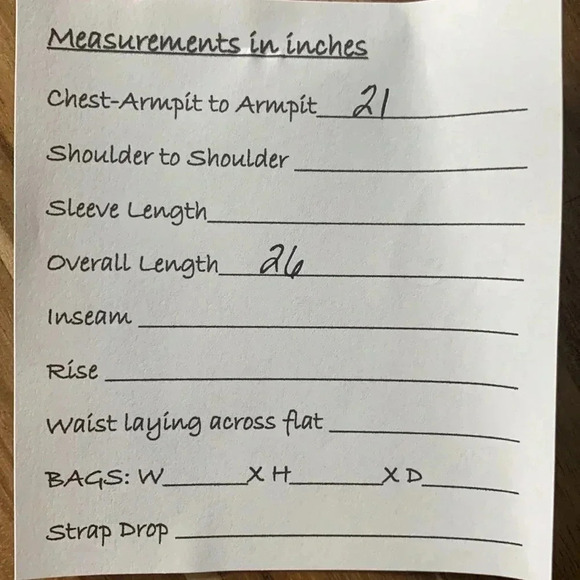 Measurements in inches
Chest-Armpit to Armpit 21
Shoulder to Shoulder
Sleeve Length
Overall Length 26
Inseam
Rise
Waist laying across flat
BAGS: W X H X D
Strap Drop